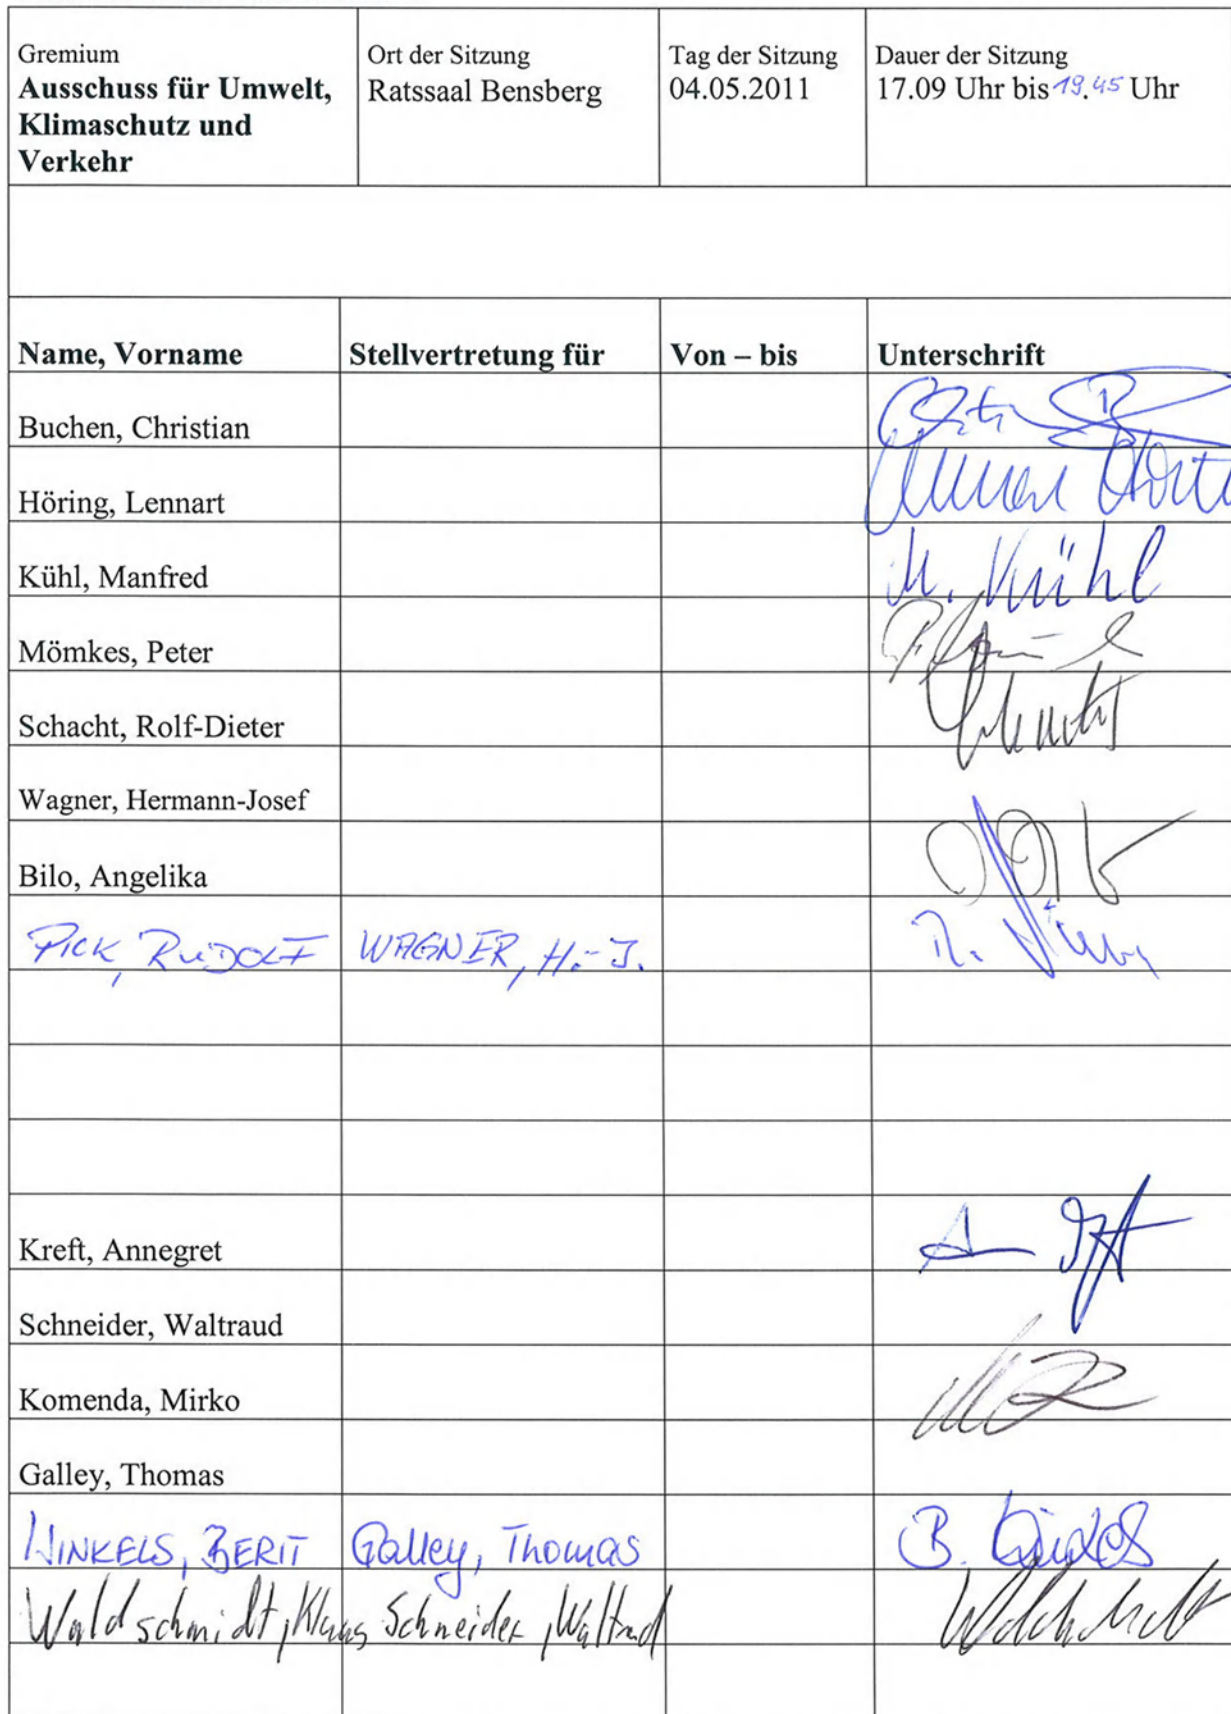 Gremium
Ausschuss für Umwelt,
Klimaschutz und
Verkehr
Ort der Sitzung
Ratssaal Bensberg
Tag der Sitzung
04.05.2011
Dauer der Sitzung
17.09 Uhr bis 19.45 Uhr
Name, Vorname Stellvertretung für Von – bis Unterschrift
Buchen, Christian
Höring, Lennart
Kühl, Manfred M. Kühl
Mömkes, Peter
Schacht, Rolf-Dieter
Wagner, Hermann-Josef
Bilo, Angelika
PICK, RUDOLF WAGNER, H.-J.
Kreft, Annegret
Schneider, Waltraud
Komenda, Mirko
Galley, Thomas
WINKELS, BERIT Galley, Thomas
Waldschmidt, Klaus Schneider, Waltraud